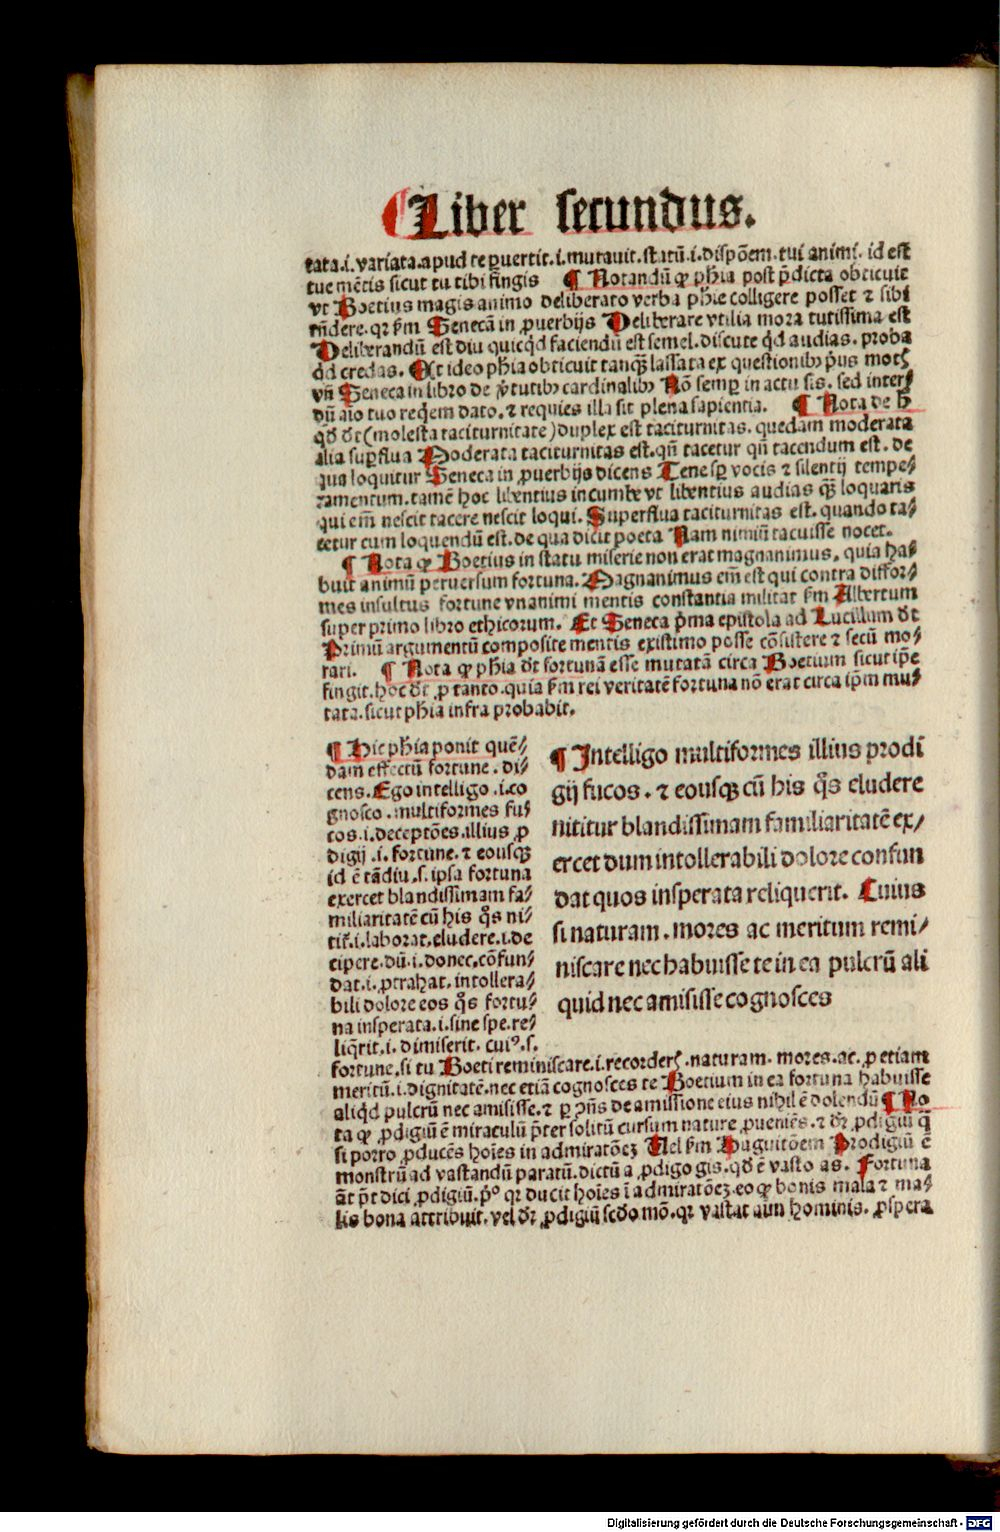 Liber secundus.
tata.i.variata.apud te ꝑuertit.i.mutauit.statū.i.dispōem.tui animi. id est
tue mētis sicut tu tibi fingis ¶ Notandū ꝙ phīa post p̄dicta obticuit
vt Boetius magis animo deliberato verba phīe colligere posset ⁊ sibi
rñdere.qꝛ ẜm Senecā in ꝓuerbijs Deliberare vtilia mora tutissima est
Deliberandū est diu quicꝗd faciendū est semel.discute qd̄ audias.proba
qd̄ credas. Et ideo phīa obticuit tanꝙ̄ lassata ex questionibꝫ pͥus motꝭ
vñ Seneca in libro de ꝟtutibꝫ cardinalibꝫ Nō semꝑ in actu sis. sed inter⸗
dū aīo tuo reqͥem dato.⁊ requies illa sit plena sapientia. ¶ Nota de h̄
qd̄ dr̄(molesta taciturnitate)duplex est taciturnitas. quedam moderata
alia suꝑflua Moderata taciturnitas est.qñ tacetur qñ tacendum est. de
qua loquitur Seneca in ꝓuerbijs dicens Tene sꝑ vocis ⁊ silentij tempe⸗
ramentum.tamē hoc libentius incumbe vt libentius audias ꝙ̄ loquaris
qui em̄ nescit tacere nescit loqui. Superflua taciturnitas est. quando ta⸗
cetur cum loquendū est.de qua dicit poeta Nam nimiū tacuisse nocet.
¶ Nota ꝙ Boetius in statu miserie non erat magnanimus. quia ha⸗
buit animū peruersum fortuna. Magnanimus em̄ est qui contra diffor⸗
mes insultus fortune vnanimi mentis constantia militat ẜm Albertum
super primo libro ethicorum. Et Seneca pͥma epistola ad Lucillum dr̄
Primū argumentū composite mentis existimo posse cōsistere ⁊ secū mo⸗
rari. ¶ Nota ꝙ phīa dr̄ fortunā esse mutatā circa Boetium sicut ip̄e
fingit.hoc dr̄ ꝓ tanto.quia ẜm rei veritatē fortuna nō erat circa ip̄m mu⸗
tata.sicut phīa infra probabit.
¶ Hic phīa ponit quē⸗
dam effectū fortune. di⸗
cens. Ego intelligo .i.co
gnosco .multiformes fu⸗
cos.i.deceptōes.illius ꝓ
digij .i. fortune.⁊ eousqꝫ
id ē tādiu .s. ipsa fortuna
exercet blandissimam fa⸗
miliaritatē cū his qͦs ni⸗
tit̄.i.laborat.eludere.i.de
cipere.dū.i.donec.cōfun⸗
dat.i.ꝓtrahat. intollera⸗
bili dolore eos qͦs fortu⸗
na insperata.i.sine spe.re⸗
liq̄rit.i. dimiserit. cuiꝰ.s.
¶ Intelligo multiformes illius prodi
gij fucos. ⁊ eousqꝫ cū his qͦs eludere
nititur blandissimam familiaritatē ex⸗
ercet dum intollerabili dolore confun
dat quos insperata reliquerit. Cuius
si naturam. mores ac meritum remi⸗
niscare nec habuisse te in ea pulcrū ali
quid nec amisisse cognosces
fortune.si tu Boeti reminiscare.i.recorderꝭ.naturam. mores.ac. ꝓ etiam
meritū.i.dignitatē.nec etiā cognosces te Boetium in ea fortuna habuisse
aliqͥd pulcrū nec amisisse.⁊ ꝑ ꝯñs de amissione eius nihil ē dolendū ¶ No
ta ꝙ ꝓdigiū ē miraculū p̄ter solitū cursum nature ꝓueniēs.⁊ dr̄ ꝓdigiū q̄
si porro ꝓducēs hoīes in admiratōeꝫ Uel ẜm Huguitōem Prodigiū ē
monstrū ad vastandū paratū.dictū a ꝓdigo gis.qd̄ ē vasto as. Fortuna
āt p̄t dici ꝓdigiū.pͥº qꝛ ducit hoīes ī admiratōeꝫ.eo ꝙ bonis mala ⁊ ma⸗
lis bona attribuit.vel dr̄ ꝓdigiū sc̄do mō.qꝛ vastat hominis. ꝓspera
Digitalisierung gefördert durch die Deutsche Forschungsgemeinschaft - DFG